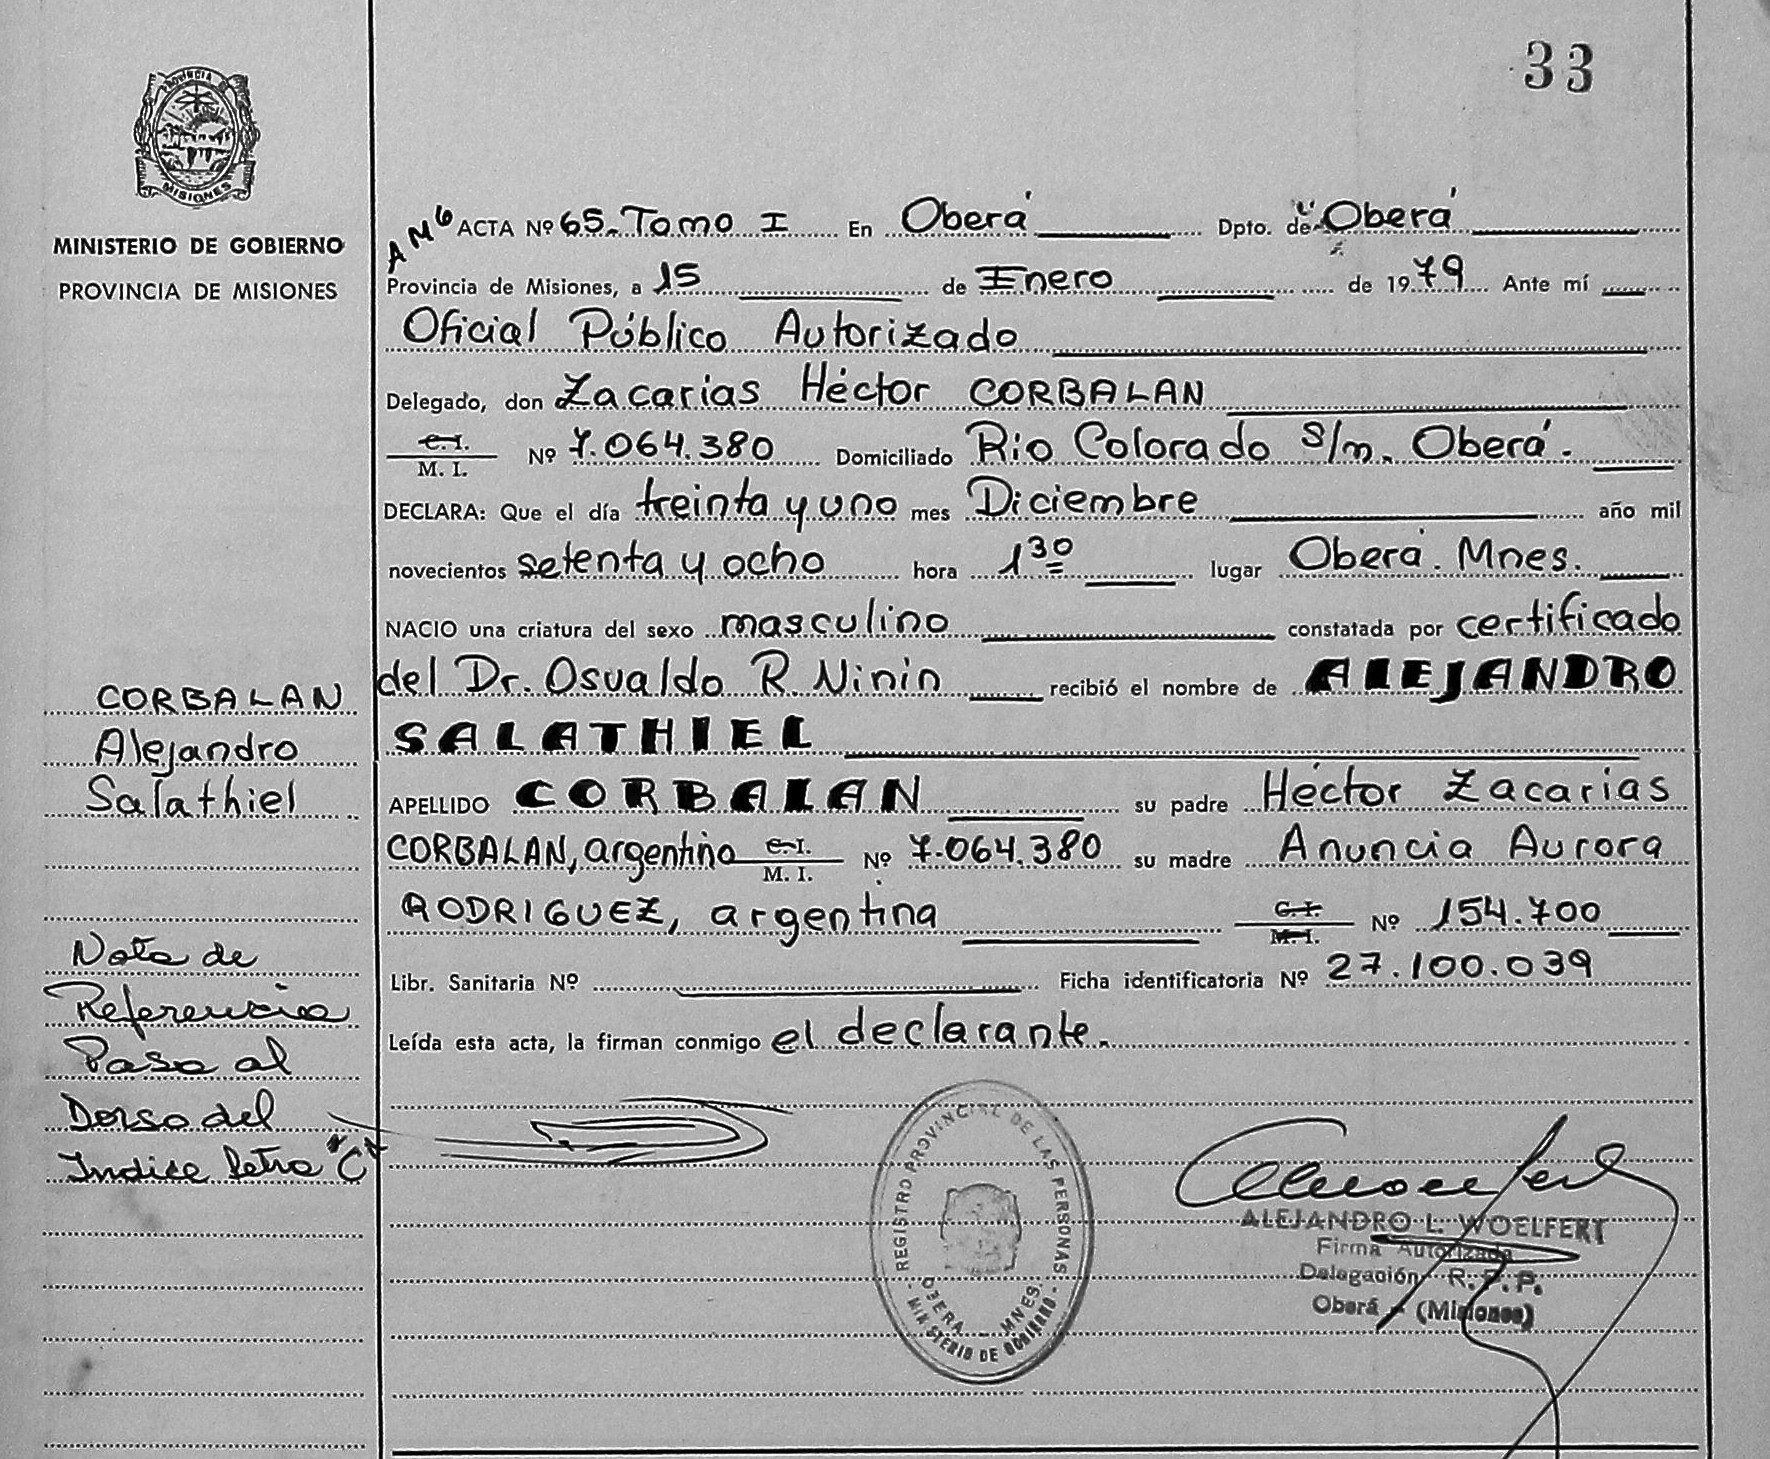 33
PROVINCIA
MISIONES
MINISTERIO DE GOBIERNO
PROVINCIA DE MISIONES
ACTA Nº 65. Tomo I En Oberá Dpto. de Oberá
Provincia de Misiones, a 15 de Enero de 1979 Ante mí
Oficial Público Autorizado
Delegado, don Zacarias Héctor CORBALAN
C.I.
M. I. Nº 7.064.380 Domiciliado Rio Colorado s/n. Oberá.
DECLARA: Que el día treinta y uno mes Diciembre año mil
novecientos setenta y ocho hora 1 30 lugar Oberá. Mnes.
NACIO una criatura del sexo masculino constatada por certificado
del Dr. Osvaldo R. Ninin recibió el nombre de ALEJANDRO
SALATHIEL
APELLIDO CORBALAN su padre Héctor Zacarias
CORBALAN, argentino C.I. M. I. Nº 7.064.380 su madre Anuncia Aurora
RODRIGUEZ, argentina C.I. M.I. Nº 154.700
Libr. Sanitaria Nº Ficha identificatoria Nº 27.100.039
Leída esta acta, la firman conmigo el declarante.
CORBALAN
Alejandro
Salathiel
Nota de
Referencia
Pasa al
Dorso del
Indice letra "C"
REGISTRO PROVINCIAL DE LAS PERSONAS
OBERA - MNES.
MINISTERIO DE GOBIERNO
ALEJANDRO L. WOELFERT
Firma Autorizada
Delegación R. P. P.
Oberá - (Misiones)